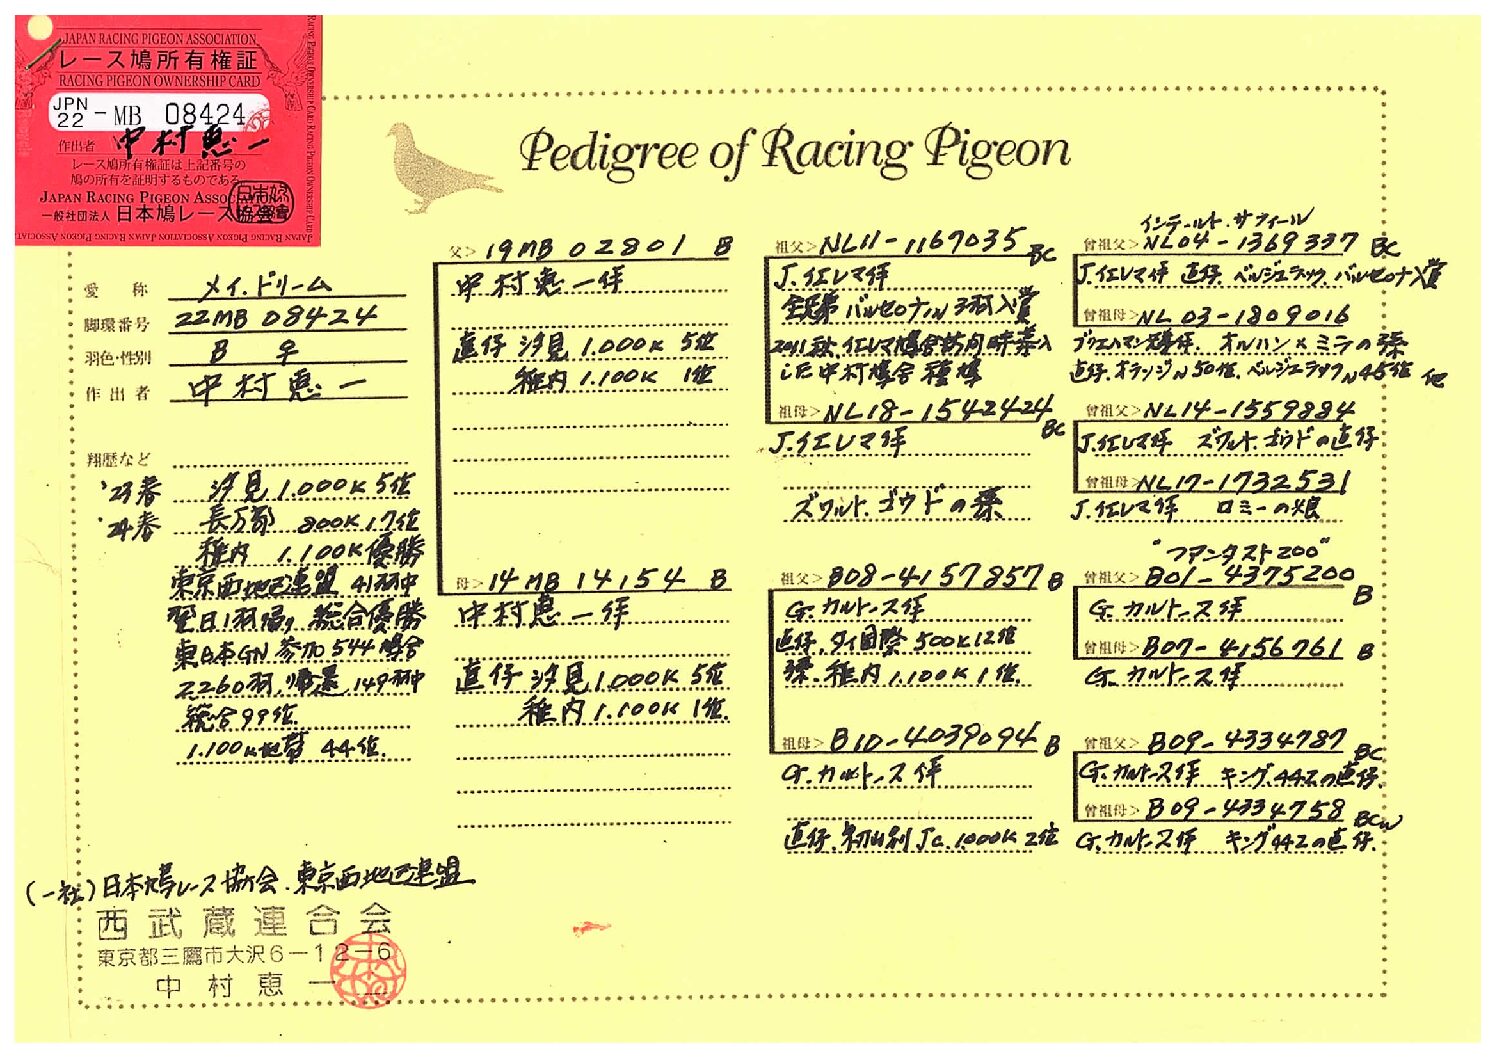 JAPAN RACING PIGEON ASSOCIATION
レース鳩所有権証
RACING PIGEON OWNERSHIP CARD
JPN 22 - MB 08424
作出者 中村惠一
レース鳩所有権証は上記番号の
鳩の所有を証明するものである
JAPAN RACING PIGEON ASSOCIATION
一般社団法人 日本鳩レース協会
Pedigree of Racing Pigeon
愛称 メイ.ドリーム
脚環番号 22MB 08424
羽色・性別 B ♀
作出者 中村惠一
翔歴など
'23春 汐見 1.000K 5位
'24春 長万部 800K 17位
稚内 1.100K 優勝
東京西地区連盟 41羽中
翌日1羽帰り 総合優勝
東日本GN 参加 544鳩舎
2,260羽.帰還 149羽中
総合99位.
1.100K地帯 44位.
父> 19MB 02801 B
中村惠一作
直仔 汐見 1.000K 5位
稚内 1.100K 1位
母> 14MB 14154 B
中村惠一作
直仔 汐見 1.000K 5位
稚内 1.100K 1位.
祖父> NL11-1169035 BC
J.イエレマ作
全兄弟 バルセロナIN 3羽入賞
2011秋.イエレマ鳩舎訪問時導入
した中村鳩舎種鳩
祖母> NL18-1542424 BC
J.イエレマ作
ズワルト.ゴウドの孫
祖父> B08-4157857 B
G.カルトース作
直仔.タイ国際 500K12位
孫.稚内 1.100K 1位.
祖母> B10-4039094 B
G.カルトース作
直仔.初出別 Jc.1000K 2位
インテールト.サフィール
曾祖父> NL04-1369337 BC
J.イエレマ作 直仔.ベルジュラック.バルセロナ入賞
曾祖母> NL 03-1809016
オルハン×ミラの孫
直仔.オランジN50位.ベルジュラックN45位 他
曾祖父> NL14-1559884
J.イエレマ作 ズワルト.ゴウドの直仔
曾祖母> NL17-1732531
J.イエレマ作 ロミーの娘
"ファンタスト200"
曾祖父> B01-4375200 B
G.カルトース作
曾祖母> B07-4156761 B
G.カルトース作
曾祖父> B09-4334787 BC
G.カルトース作 キング.442の直仔.
曾祖母> B09-4334758 BCW
G.カルトース作 キング442の直仔.
(一社)日本鳩レース協会.東京西地区連盟
西武蔵連合会
東京都三鷹市大沢6-12-6
中村惠一